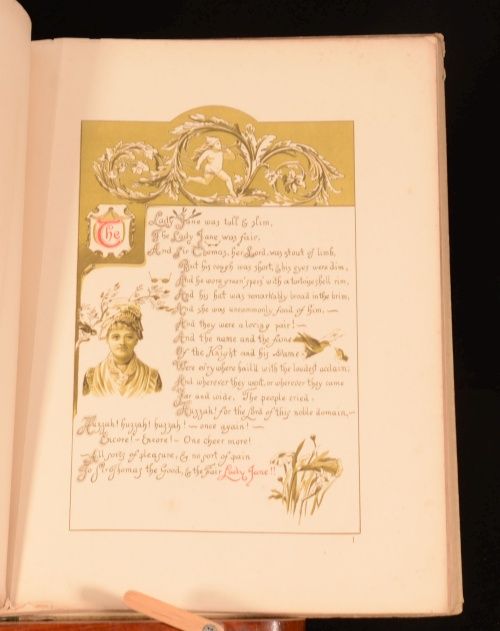 The
Lady Jane was tall & slim,
The Lady Jane was fair,
And Sir Thomas, her Lord, was stout of limb,
But his cough was short, & his eyes were dim,
And he wore green 'specs' with a tortoiseshell rim,
And his hat was remarkably broad in the brim,
And she was uncommonly fond of him,—
And they were a loving pair!—
And the name and the fame
Of the Knight and his Dame
Were ev'rywhere hail'd with the loudest acclaim;
And wherever they went, or wherever they came
Far and wide, The people cried,
Huzzah! for the Lord of this noble domain,—
Huzzah! huzzah! huzzah! — once again!—
Encore! — Encore! — One cheer more!
—All sorts of pleasure, & no sort of pain
To Sir Thomas the Good, & the Fair Lady Jane!!
1